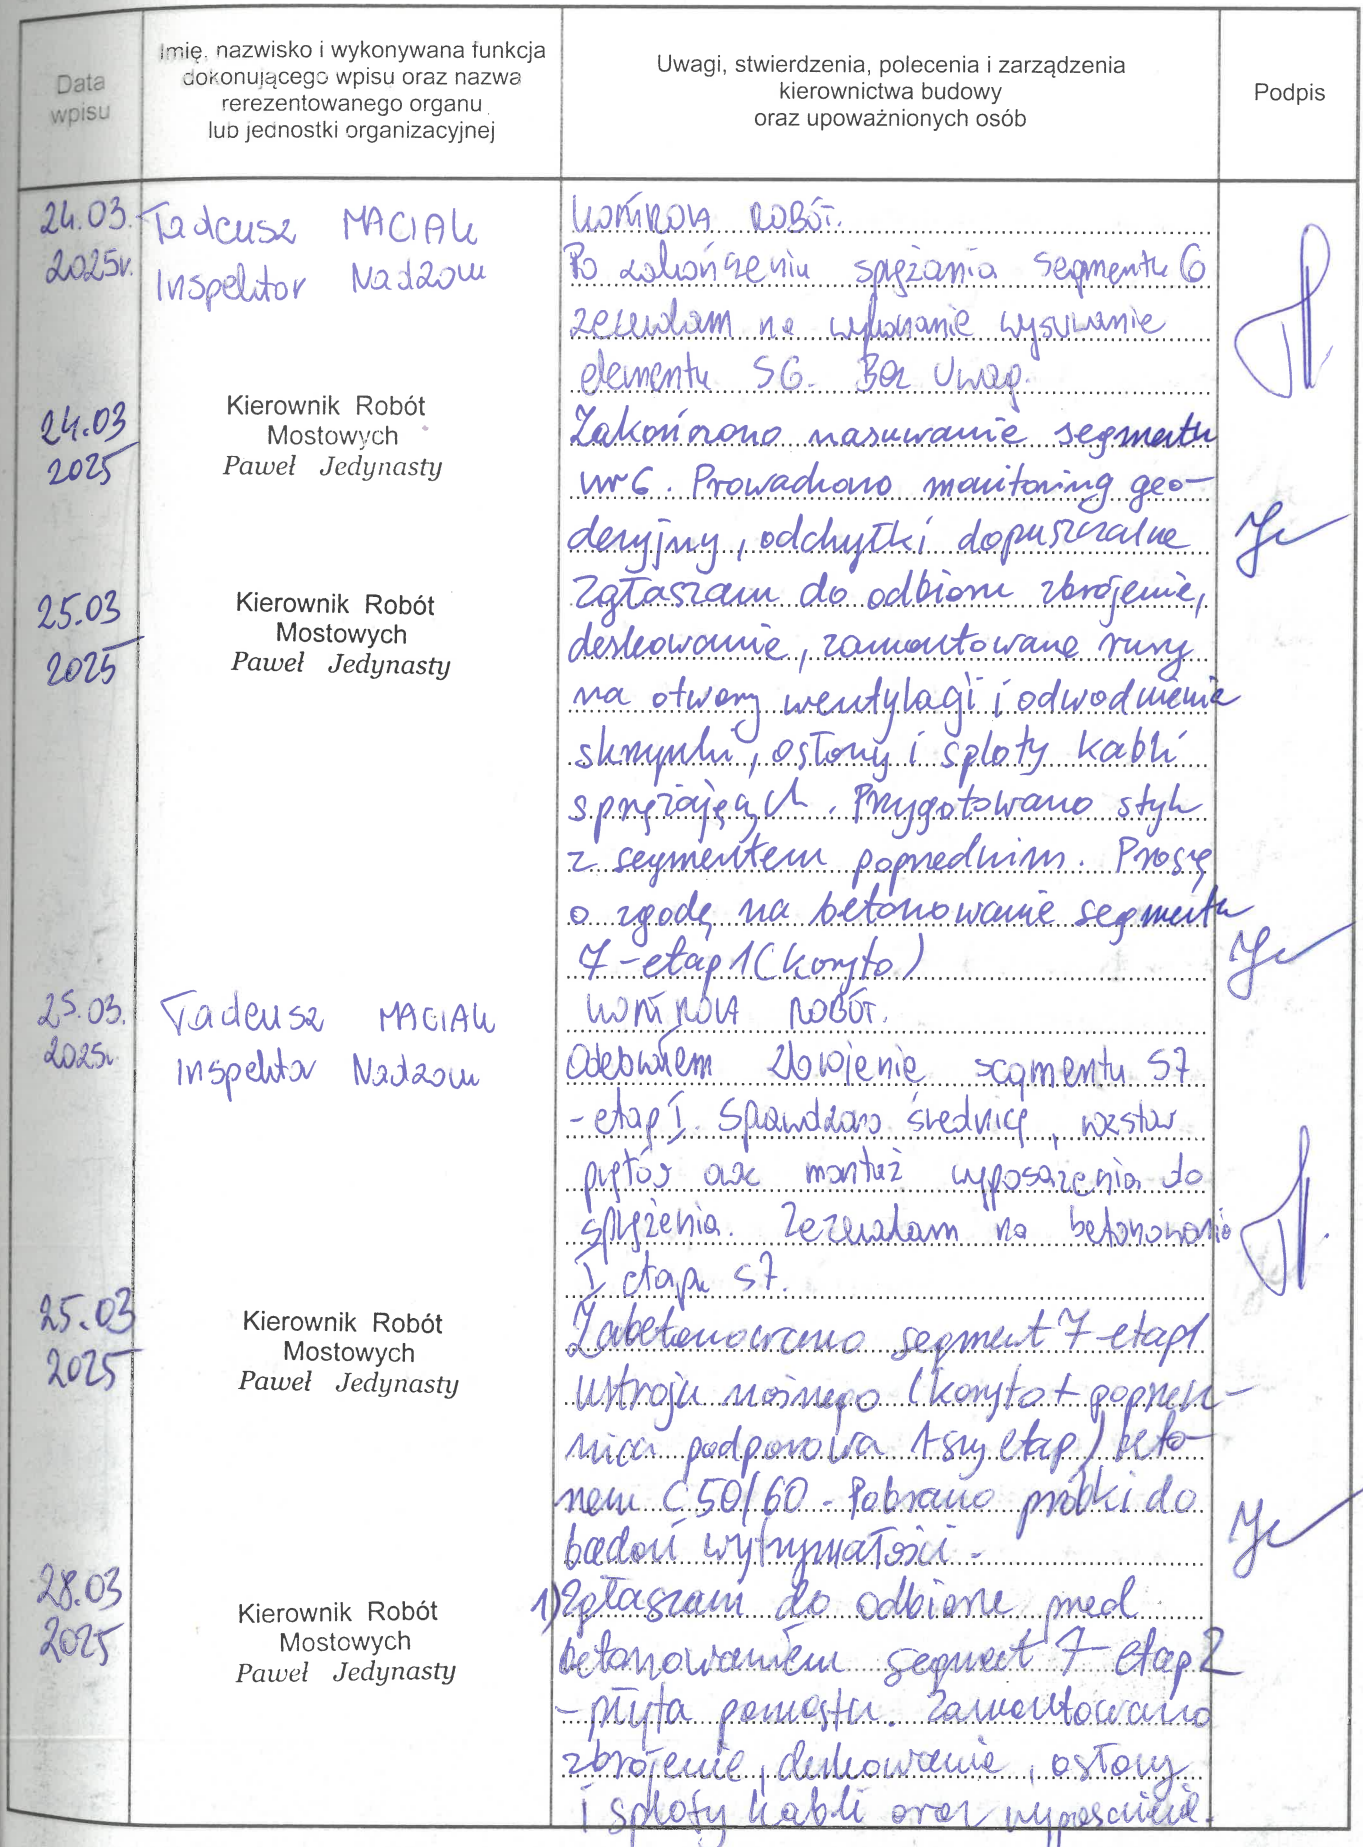 Data
wpisu
Imię, nazwisko i wykonywana funkcja
dokonującego wpisu oraz nazwa
rerezentowanego organu
lub jednostki organizacyjnej
Uwagi, stwierdzenia, polecenia i zarządzenia
kierownictwa budowy
oraz upoważnionych osób
Podpis
24.03.
2025r.
Tadeusz MACIAK
Inspektor Nadzoru
KONTROLA ROBÓT.
Po zakończeniu sprężania segmentu 6
zezwalam na wykonanie wysuwanie
elementu S6. Bez Uwag.
24.03
2025
Kierownik Robót
Mostowych
Paweł Jedynasty
Zakończono nasuwanie segmentu
nr 6. Prowadzono monitoring geo-
dezyjny, odchyłki dopuszczalne
25.03
2025
Kierownik Robót
Mostowych
Paweł Jedynasty
Zgłaszam do odbioru zbrojenie,
deskowanie, zamontowane rury
na otwory wentylacji i odwodnienie
skrzynki, osłony i sploty kabli
sprężających. Przygotowano styk
z segmentem poprzednim. Proszę
o zgodę na betonowanie segmentu
7 - etap 1 (koryto)
25.03.
2025r.
Tadeusz MACIAK
Inspektor Nadzoru
KONTROLA ROBÓT.
Odebrałem zbrojenie segmentu S7
- etap I. Sprawdzono średnicę, rozstaw
prętów oraz montaż wyposażenia do
sprężenia. Zezwalam na betonowanie
I etapu S7.
25.03
2025
Kierownik Robót
Mostowych
Paweł Jedynasty
Zabetonowano segment 7 - etap 1
ustroju nośnego (koryto + poprzecz-
nica podporowa 1-szy etap) beto-
nem C50/60 - Pobrano próbki do
badań wytrzymałości -
28.03
2025
Kierownik Robót
Mostowych
Paweł Jedynasty
1) Zgłaszam do odbioru przed
betonowaniem segment 7 - etap 2
- płyta pomostu. Zamontowano
zbrojenie, deskowanie, osłony
i sploty kabli oraz